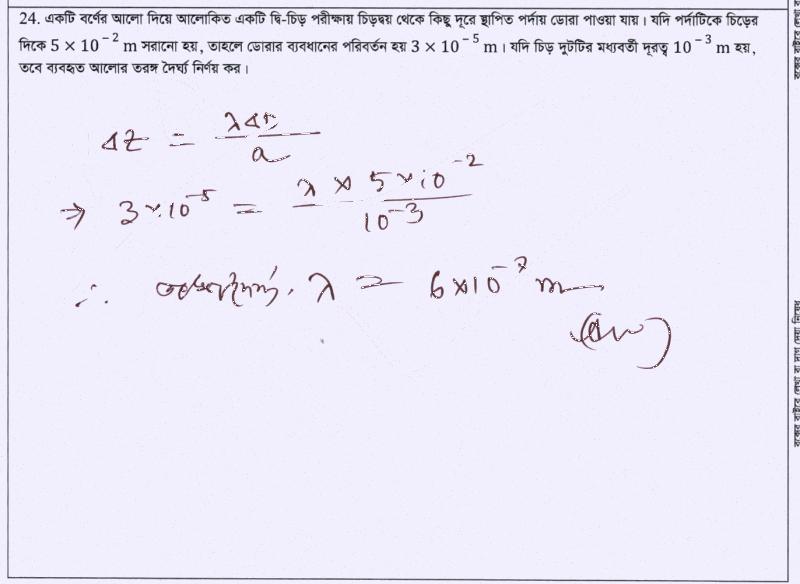 24. একটি বর্ণের আলো দিয়ে আলোকিত একটি দ্বি-চিড় পরীক্ষায় চিড়দ্বয় থেকে কিছু দূরে স্থাপিত পর্দায় ডোরা পাওয়া যায়। যদি পর্দাটিকে চিড়ের
দিকে 5 × 10⁻² m সরানো হয়, তাহলে ডোরার ব্যবধানের পরিবর্তন হয় 3 × 10⁻⁵ m। যদি চিড় দুটির মধ্যবর্তী দূরত্ব 10⁻³ m হয়,
তবে ব্যবহৃত আলোর তরঙ্গ দৈর্ঘ্য নির্ণয় কর।
Δz = λΔD / a
⇒ 3×10⁻⁵ = λ × 5×10⁻² / 10⁻³
∴ তরঙ্গদৈর্ঘ্য, λ = 6×10⁻⁷ m
(Ans)